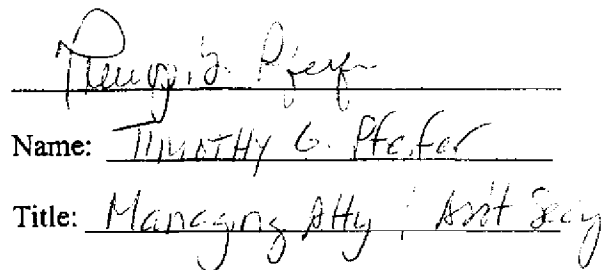 Timothy G. Pfeifer
Name: TIMOTHY G. Pfeifer
Title: Managing Atty & Ass't Secy